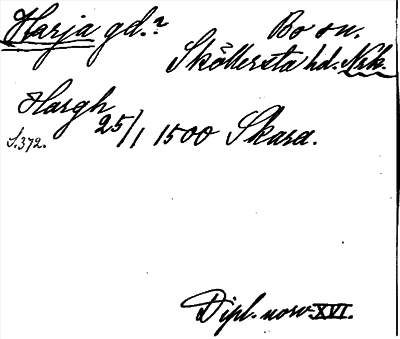 Harja gd.? Bo sn.
Sköllersta hd. Nrk.
Hargh
25/1 1500 Skara.
S. 372.
Dipl. norv. XVI.